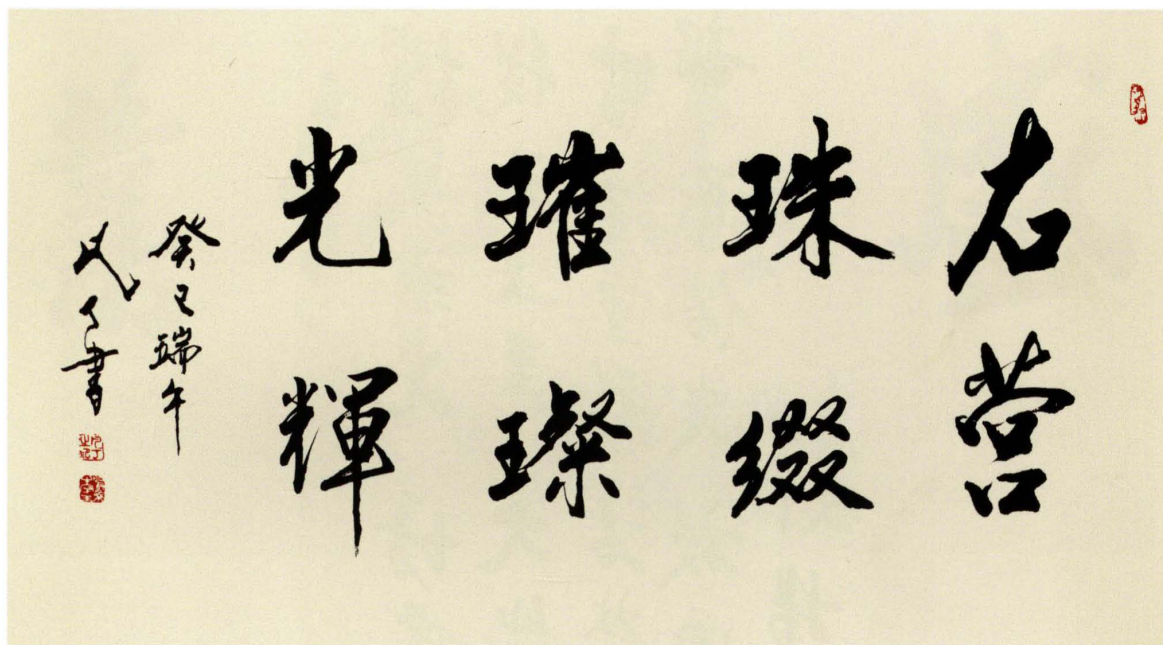 右营
珠缀
璀璨
光輝
癸巳端午
書